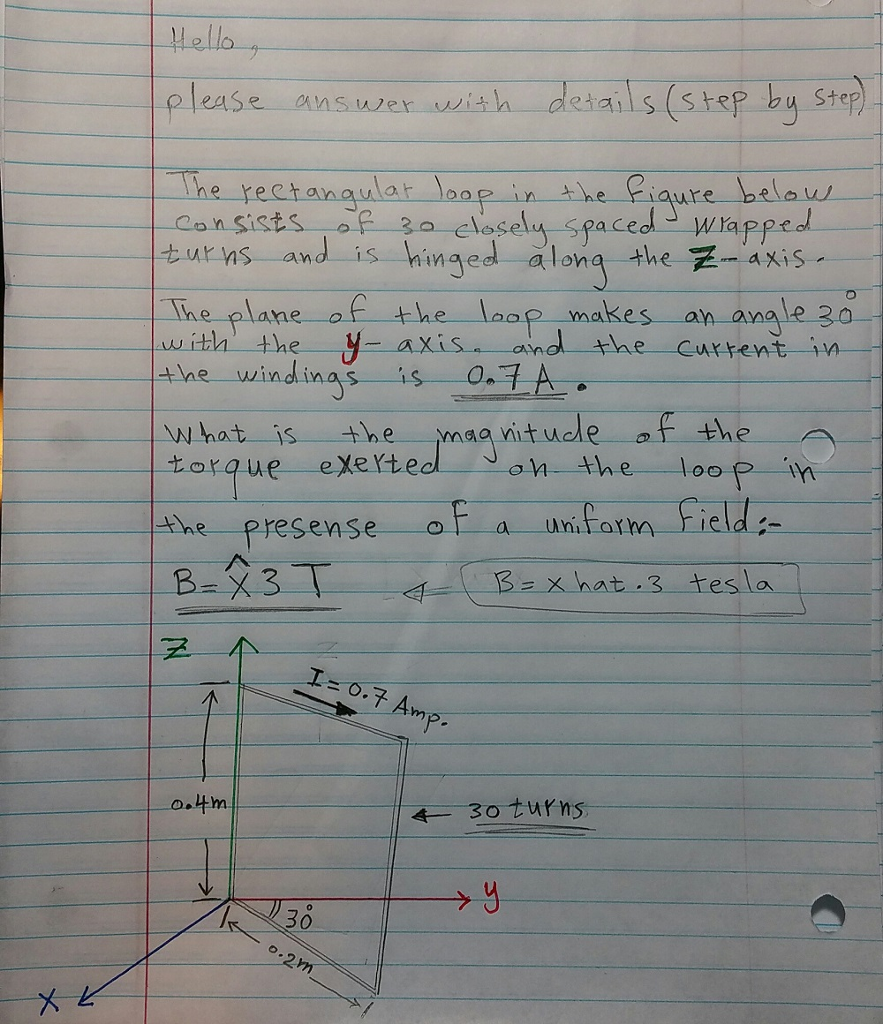 Hello,
please answer with details (step by step)
The rectangular loop in the figure below
consists of 30 closely spaced wrapped
turns and is hinged along the Z-axis.
The plane of the loop makes an angle 30°
with the y-axis. and the current in
the windings is 0.7 A.
What is the magnitude of the
torque exerted on the loop in
the presense of a uniform field:-
B=x̂3 T ⇐ B=x hat.3 tesla
Z
I=0.7 Amp.
0.4m
← 30 turns
y
30°
0.2m
X